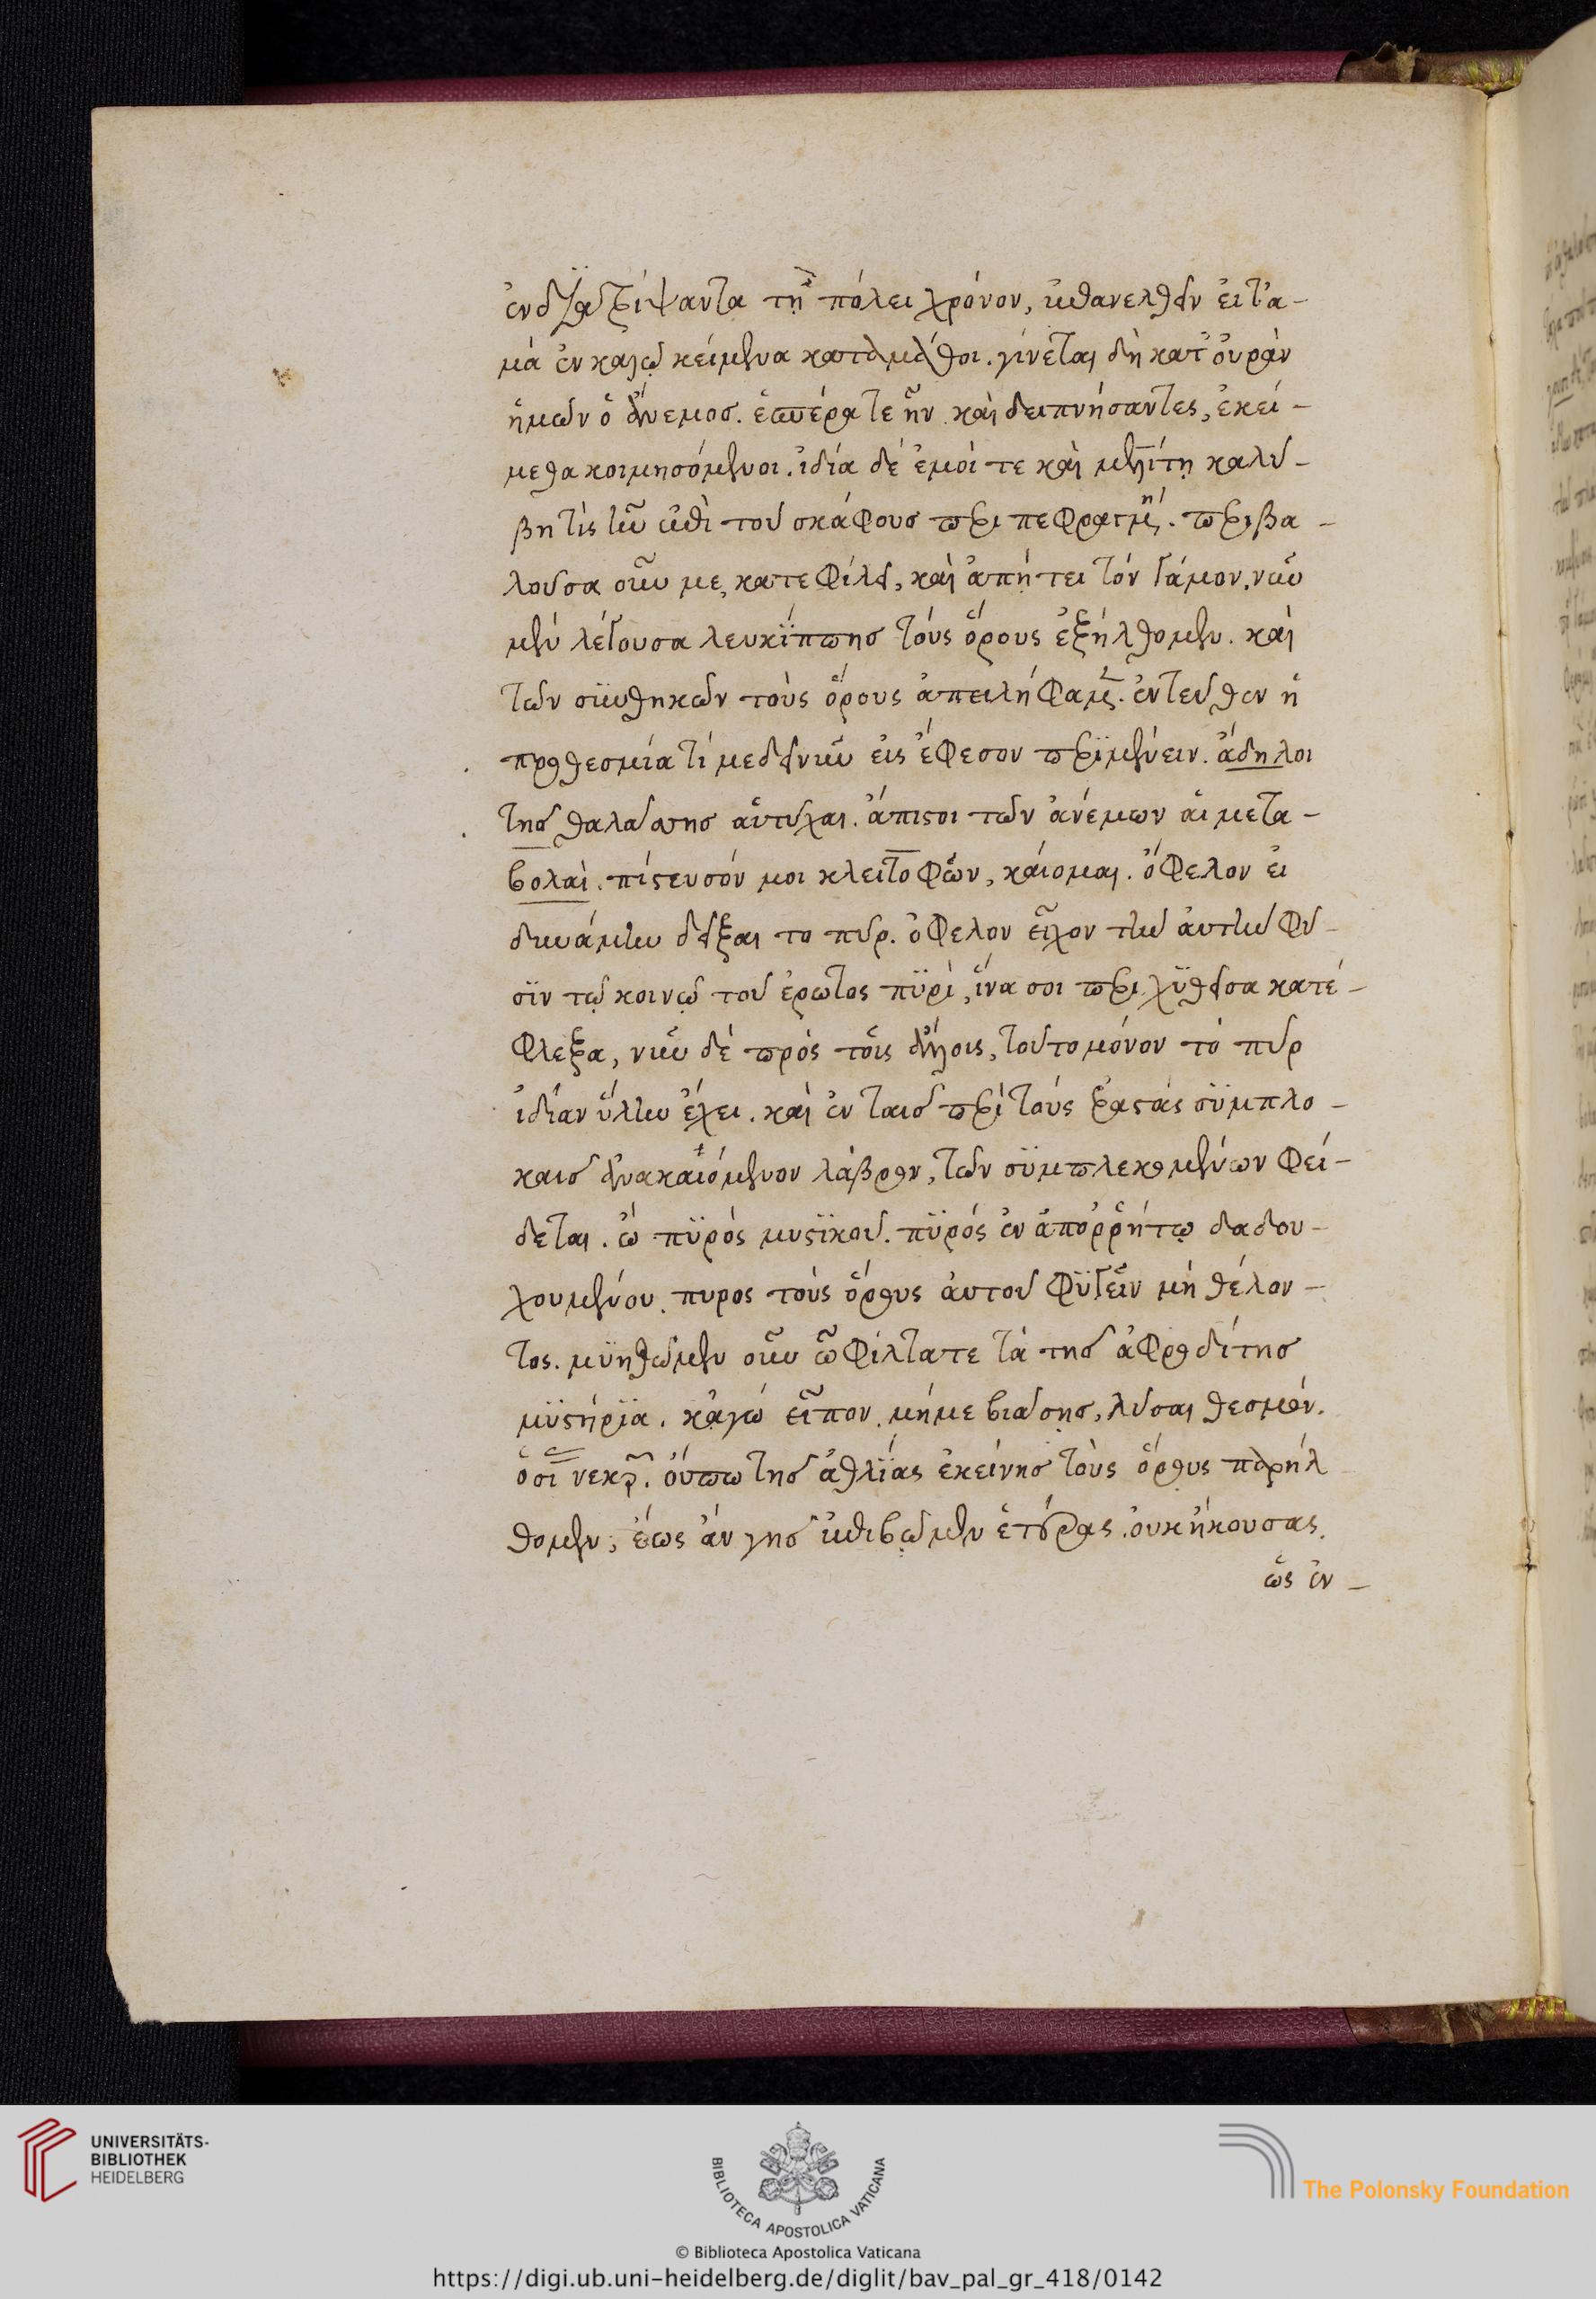 ἐνδιατρίψαντα τῇ πόλει χρόνον, ἐπανελθεῖν εἰ τἀ-
μὰ ἐν καλῷ κείμενα καταμάθοι. γίνεται δὴ κατ' οὐρὰν
ἡμῶν ὁ ἄνεμοσ. ἑσπέρα τε ἦν καὶ δειπνήσαντες, ἐκεί-
μεθα κοιμησόμενοι. ἰδία δέ ἐμοί τε καὶ μελίτῃ καλύ-
βη τίς ἦν ἐπὶ τοῦ σκάφουσ περιπεφραγμένη. περιβα-
λοῦσα οὖν με, κατεφίλει, καὶ ἀπῄτει τόν γάμον, νῦν
μὲν λέγουσα λευκίππησ τούς ὅρους ἐξήλθομεν. καὶ
τῶν συνθηκῶν τοὺς ὅρους ἀπειλήφαμεν. ἐντεῦθεν ἡ
προθεσμία τί με δεῖ νῦν εἰς ἔφεσον περιμένειν. ἄδηλοι
τῆσ θαλάσσησ αἱ τύχαι. ἄπιστοι τῶν ἀνέμων αἱ μετα-
βολαὶ. πίστευσόν μοι κλειτοφῶν, κάιομαι. ὄφελον ἐι
δυνάμην δεῖξαι το πῦρ. ὄφελον εἶχον τὴν ἀυτὴν φύ-
σιν τῷ κοινῷ τοῦ ἔρωτος πυρὶ, ἵνα σοι περιχυθεῖσα κατέ-
φλεξα, νῦν δὲ πρὸς τοῖς ἄλλοις, τοῦτο μόνον τὸ πῦρ
ἰδίαν ὕλην ἔχει. καὶ ἐν ταῖσ περὶ τοὺς ἐραστάς συμπλο-
καῖσ ἀνακαιόμενον λάβρον, τῶν συμπλεκομένων φεί-
δεται. ὦ πυρός μυστικοῦ. πυρός ἐν ἀπορρήτῳ δαδου-
χουμένου. πυρος τοὺς ὅρους ἀυτοῦ φυγεῖν μὴ θέλον-
τος. μυηθῶμεν οὖν ὦ φίλτατε τὰ τῆσ ἀφροδίτησ
μυστήρια. κἀγώ εἶπον. μή με βιάσῃσ, λῦσαι θεσμὸν.
ὁσίας νεκρῶν. οὔπω τῆσ ἀθλίας ἐκείνησ τοὺς ὅρους παρήλ
θομεν, ἕως ἂν γῆσ ἐπιβῶμεν ἑτέρας. οὐκ ἤκουσας.
ὡς ἐν-
UNIVERSITÄTS-
BIBLIOTHEK
HEIDELBERG
BIBLIOTECA APOSTOLICA VATICANA
© Biblioteca Apostolica Vaticana
The Polonsky Foundation
https://digi.ub.uni-heidelberg.de/diglit/bav_pal_gr_418/0142